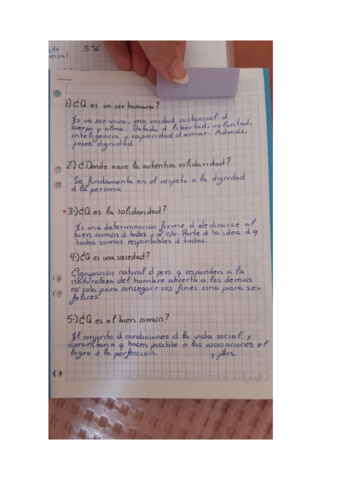 5%
1-) ¿Q es un ser humano?
Es un ser vivo, una unidad sustancial d
cuerpo y alma. Dotado d libertad, voluntad,
inteligencia y capacidad d amar. Además,
posee dignidad.
2-) ¿Donde nace la autentica solidaridad?
Se fundamenta en el respeto a la dignidad
d la persona
3-) ¿Q es la solidaridad?
Es una determinación firme d dedicarse al
bien común d todos y d c/u. Parte d la idea d q
todos somos responsables d todos.
4-) ¿Q es una sociedad?
Agrupación natural d pers. q responden a la
naturaleza del hombre abierta a los demás
no solo para conseguir sus fines sino para ser
felices
5-) ¿Q es al bien común?
El conjunto d condiciones d la vida social y
comunitaria q hacen posible a las asociaciones el
logro d la perfección.
y pers.